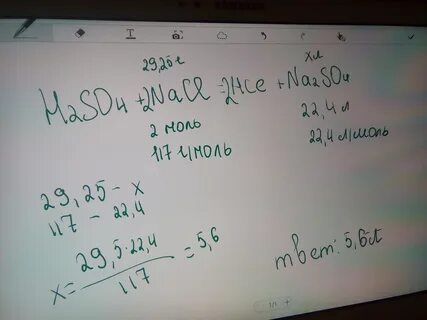 29,25г
xл
H2SO4 + 2NaCl = 2HCl + Na2SO4
2 моль
22,4 л
117 г/моль
22,4 л/моль
29,25 – x
117 – 22,4
x = 29,5·22,4 / 117 = 5,6
ответ: 5,6л
1/1